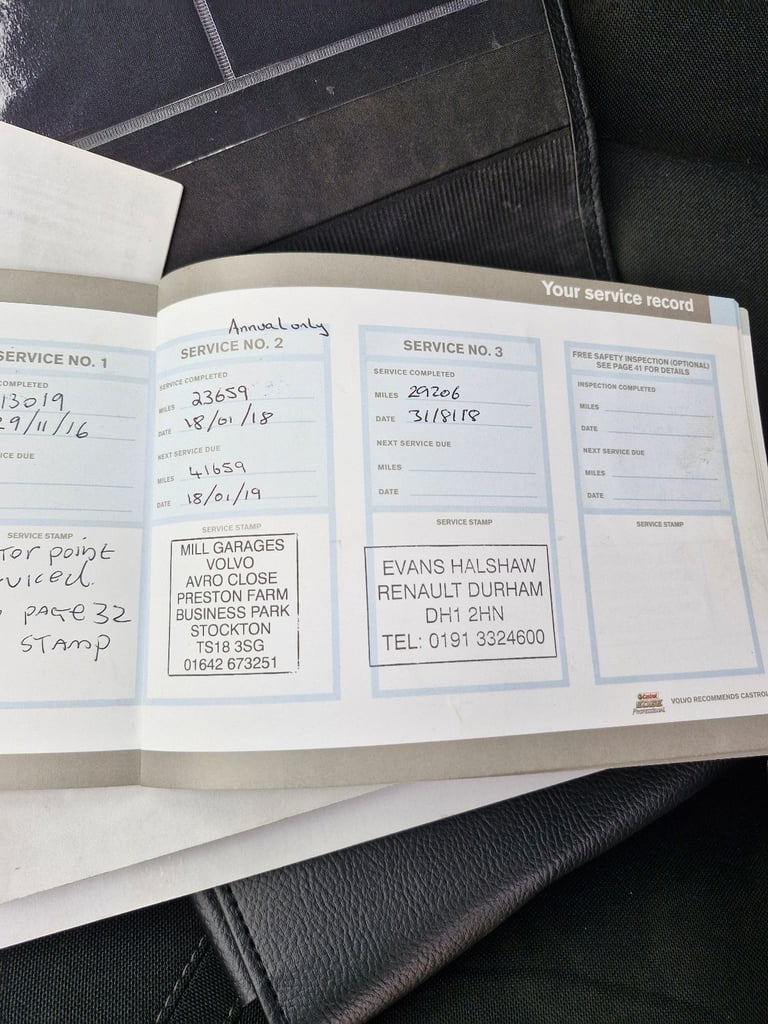 Your service record
SERVICE NO. 1
COMPLETED
13019
29/11/16
ICE DUE
SERVICE STAMP
tor point
viced.
PAGE 32
STAMP
Annual only
SERVICE NO. 2
SERVICE COMPLETED
MILES 23659
DATE 18/01/18
NEXT SERVICE DUE
MILES 41659
DATE 18/01/19
SERVICE STAMP
MILL GARAGES
VOLVO
AVRO CLOSE
PRESTON FARM
BUSINESS PARK
STOCKTON
TS18 3SG
01642 673251
SERVICE NO. 3
SERVICE COMPLETED
MILES 29206
DATE 31/8/18
NEXT SERVICE DUE
MILES
DATE
SERVICE STAMP
EVANS HALSHAW
RENAULT DURHAM
DH1 2HN
TEL: 0191 3324600
FREE SAFETY INSPECTION (OPTIONAL)
SEE PAGE 41 FOR DETAILS
INSPECTION COMPLETED
MILES
DATE
NEXT SERVICE DUE
MILES
DATE
SERVICE STAMP
Castrol
EDGE
Professional
VOLVO RECOMMENDS CASTROL